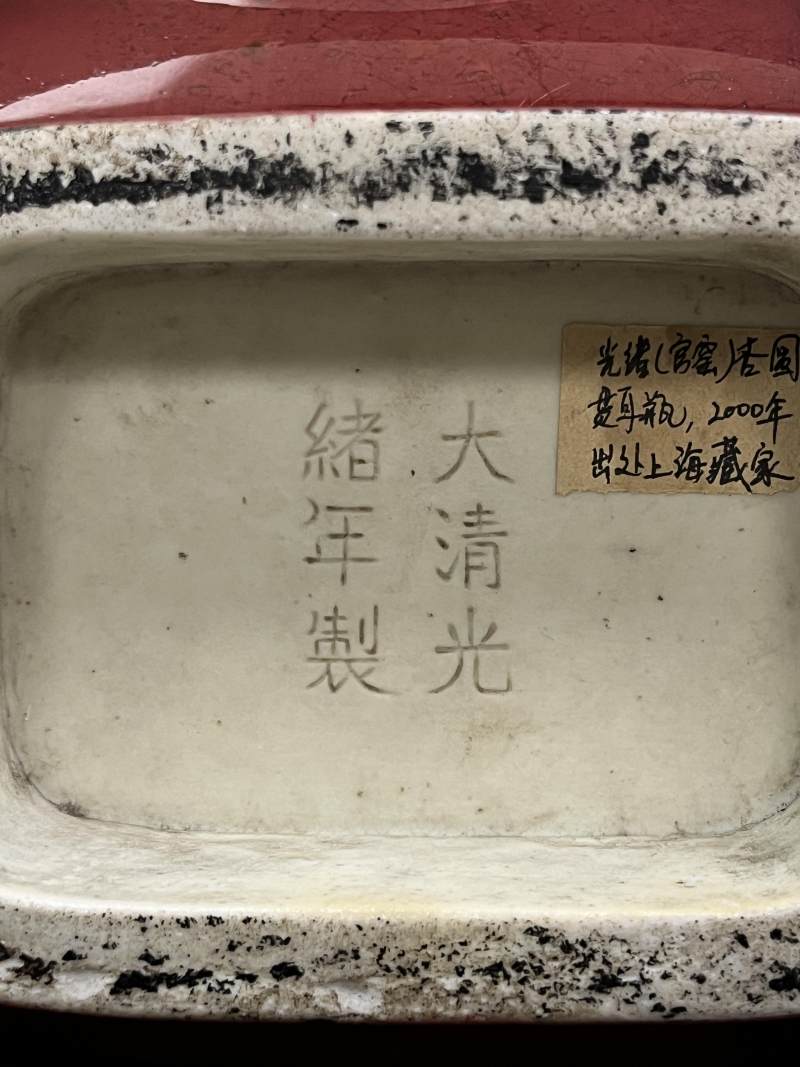 大清光
緒年製
光绪(官窑)杏圆
贯耳瓶,2000年
出处上海藏家